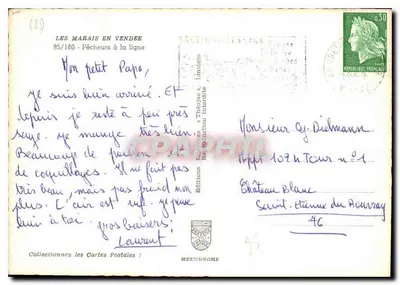 LES MARAIS EN VENDEE
85/100 - Pêcheurs à la ligne
Mon petit Papa,
je suis bien arrivé. Et
depuis je reste à peu près
sage. je mange très bien.
Beaucoup de poisson et
de coquillages. Il ne fait pas
très beau, mais pas froid non
plus. L'air est vif. je pense
bien à toi. gros baisers!
Laurent
Collectionnez les Cartes Postales !
MEXICHROME
Editions Théojac, Limoges
Reproduction interdite
0,30
REPUBLIQUE FRANCAISE
Monsieur Cy. Dielmann
Appt 109 H Tour n° 1
Château blanc
Saint-Etienne du Rouvray
76